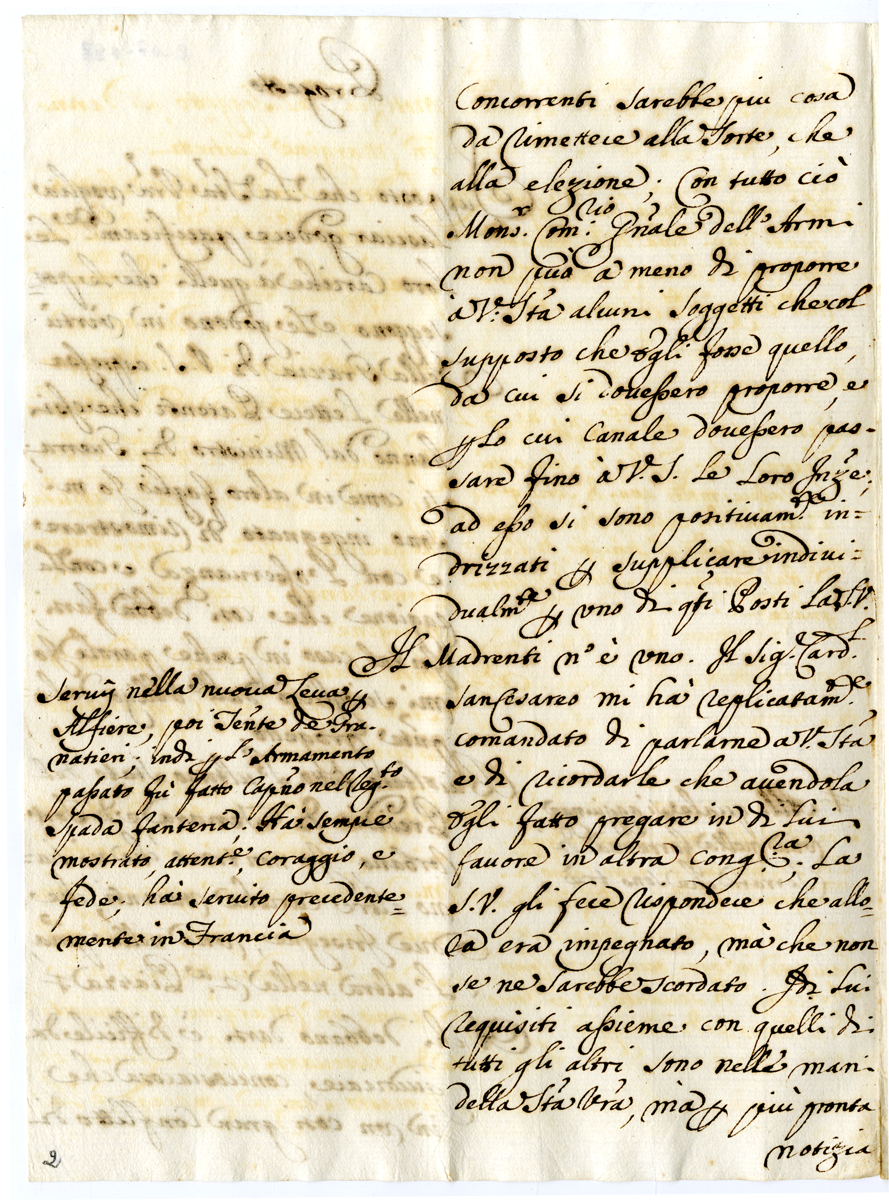 Concorrenti sarebbe piu cosa
da rimettere alla Sorte, che
alla elezione; Con tutto ciò
Mons.r Com.rio Gñale dell'Armi
non può a meno di proporre
à V. Stà alcuni soggetti che col
supposto che Egli fosse quello,
da cui si dovessero proporre, e
p lo cui Canale dovessero pas-
sare fino à V. S. le loro Inze,
ad esso si sono positivam.te in-
drizzati p supplicare indivi-
dualm.te p uno di qti Posti la S.V.
Il Madrenti n'è uno. Il Sig.r Card.l
Sancesareo mi hà replicatam.te
comandato di parlarne a V. Stà
e di ricordarle che avendola
Egli fatto pregare in di lui
favore in altra cong.ra, La
S.V. gli fece rispondere che allo-
ra era impegnato, mà che non
se ne sarebbe scordato. I di lui
requisiti assieme con quelli di
tutti gli altri sono nelle mani
della Stà Vrà, mà p più pronta
notizia
Servij nella nuova Leva p
Alfiere, poi Tente de Gra-
natieri; indi p l'Armamento
passato fù fatto Capño nel Reg.to
Spada fanteria; Hà sempre
mostrato, attent.e, coraggio, e
fede; hà servito precedente=
mente in Francia
2